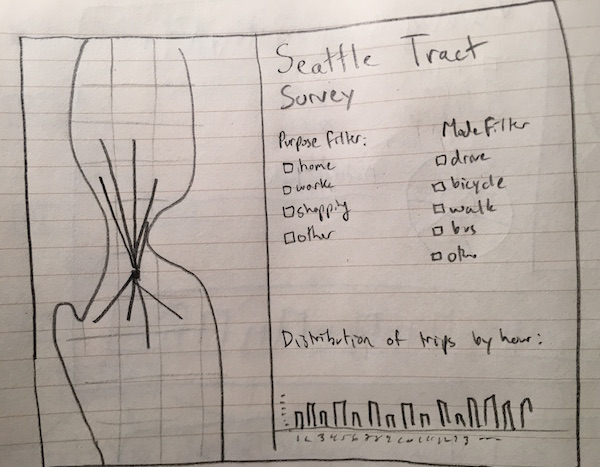 Seattle Tract
Survey
Purpose Filter:
home
work
shopping
other
Mode Filter
drive
bicycle
walk
bus
Distribution of trips by hour: